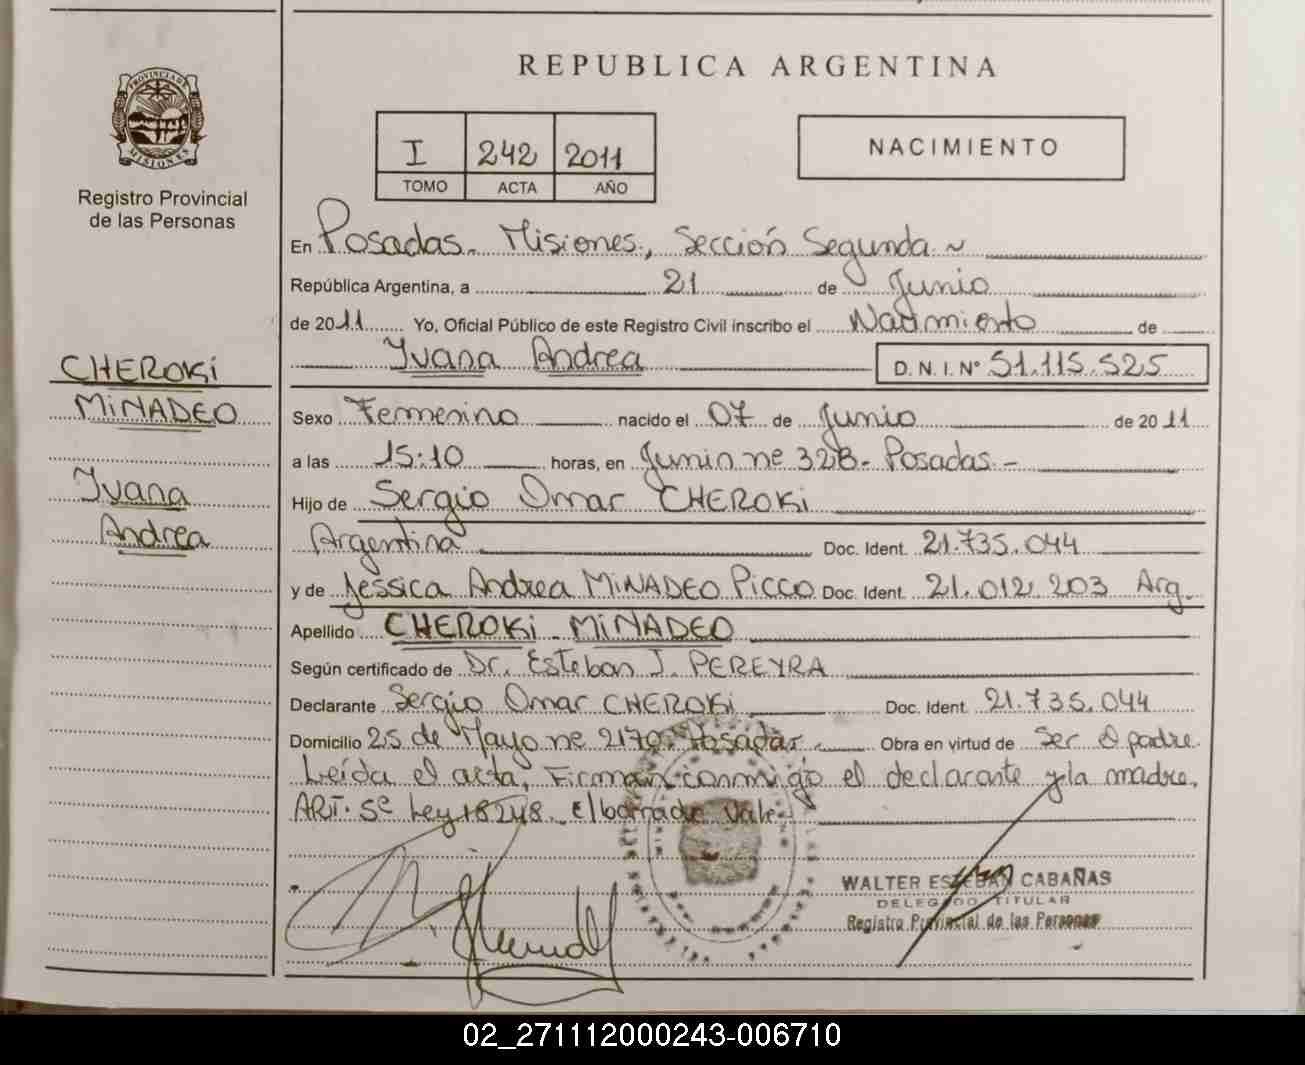 REPUBLICA ARGENTINA
PROVINCIA DE MISIONES
Registro Provincial
de las Personas
I 242 2011
TOMO ACTA AÑO
NACIMIENTO
En Posadas. Misiones, Sección Segunda
República Argentina, a 21 de Junio
de 2011 Yo, Oficial Público de este Registro Civil inscribo el Nacimiento de
Ivana Andrea D.N.I. Nº 51.115.525
CHEROKi
MiNADEO
Ivana
Andrea
Sexo Femenino nacido el 07 de Junio de 2011
a las 15:10 horas, en Junin nº 328- Posadas -
Hijo de Sergio Omar CHEROKi
Argentina Doc. Ident. 21.735.044
y de Jessica Andrea MiNADEO PiCCO Doc. Ident. 21.012.203 Arg.
Apellido CHEROKi MiNADEO
Según certificado de Dr. Esteban J. PEREYRA
Declarante Sergio Omar CHEROKi Doc. Ident. 21.735.044
Domicilio 25 de Mayo nº 2170. Posadas Obra en virtud de Ser el padre.
Leída el acta, Firman conmigo el declarante y la madre.
ART. 5º Ley 18248. El borrado Vale
WALTER ESTEBAN CABAÑAS
DELEGADO TITULAR
Registro Provincial de las Personas
02_271112000243-006710